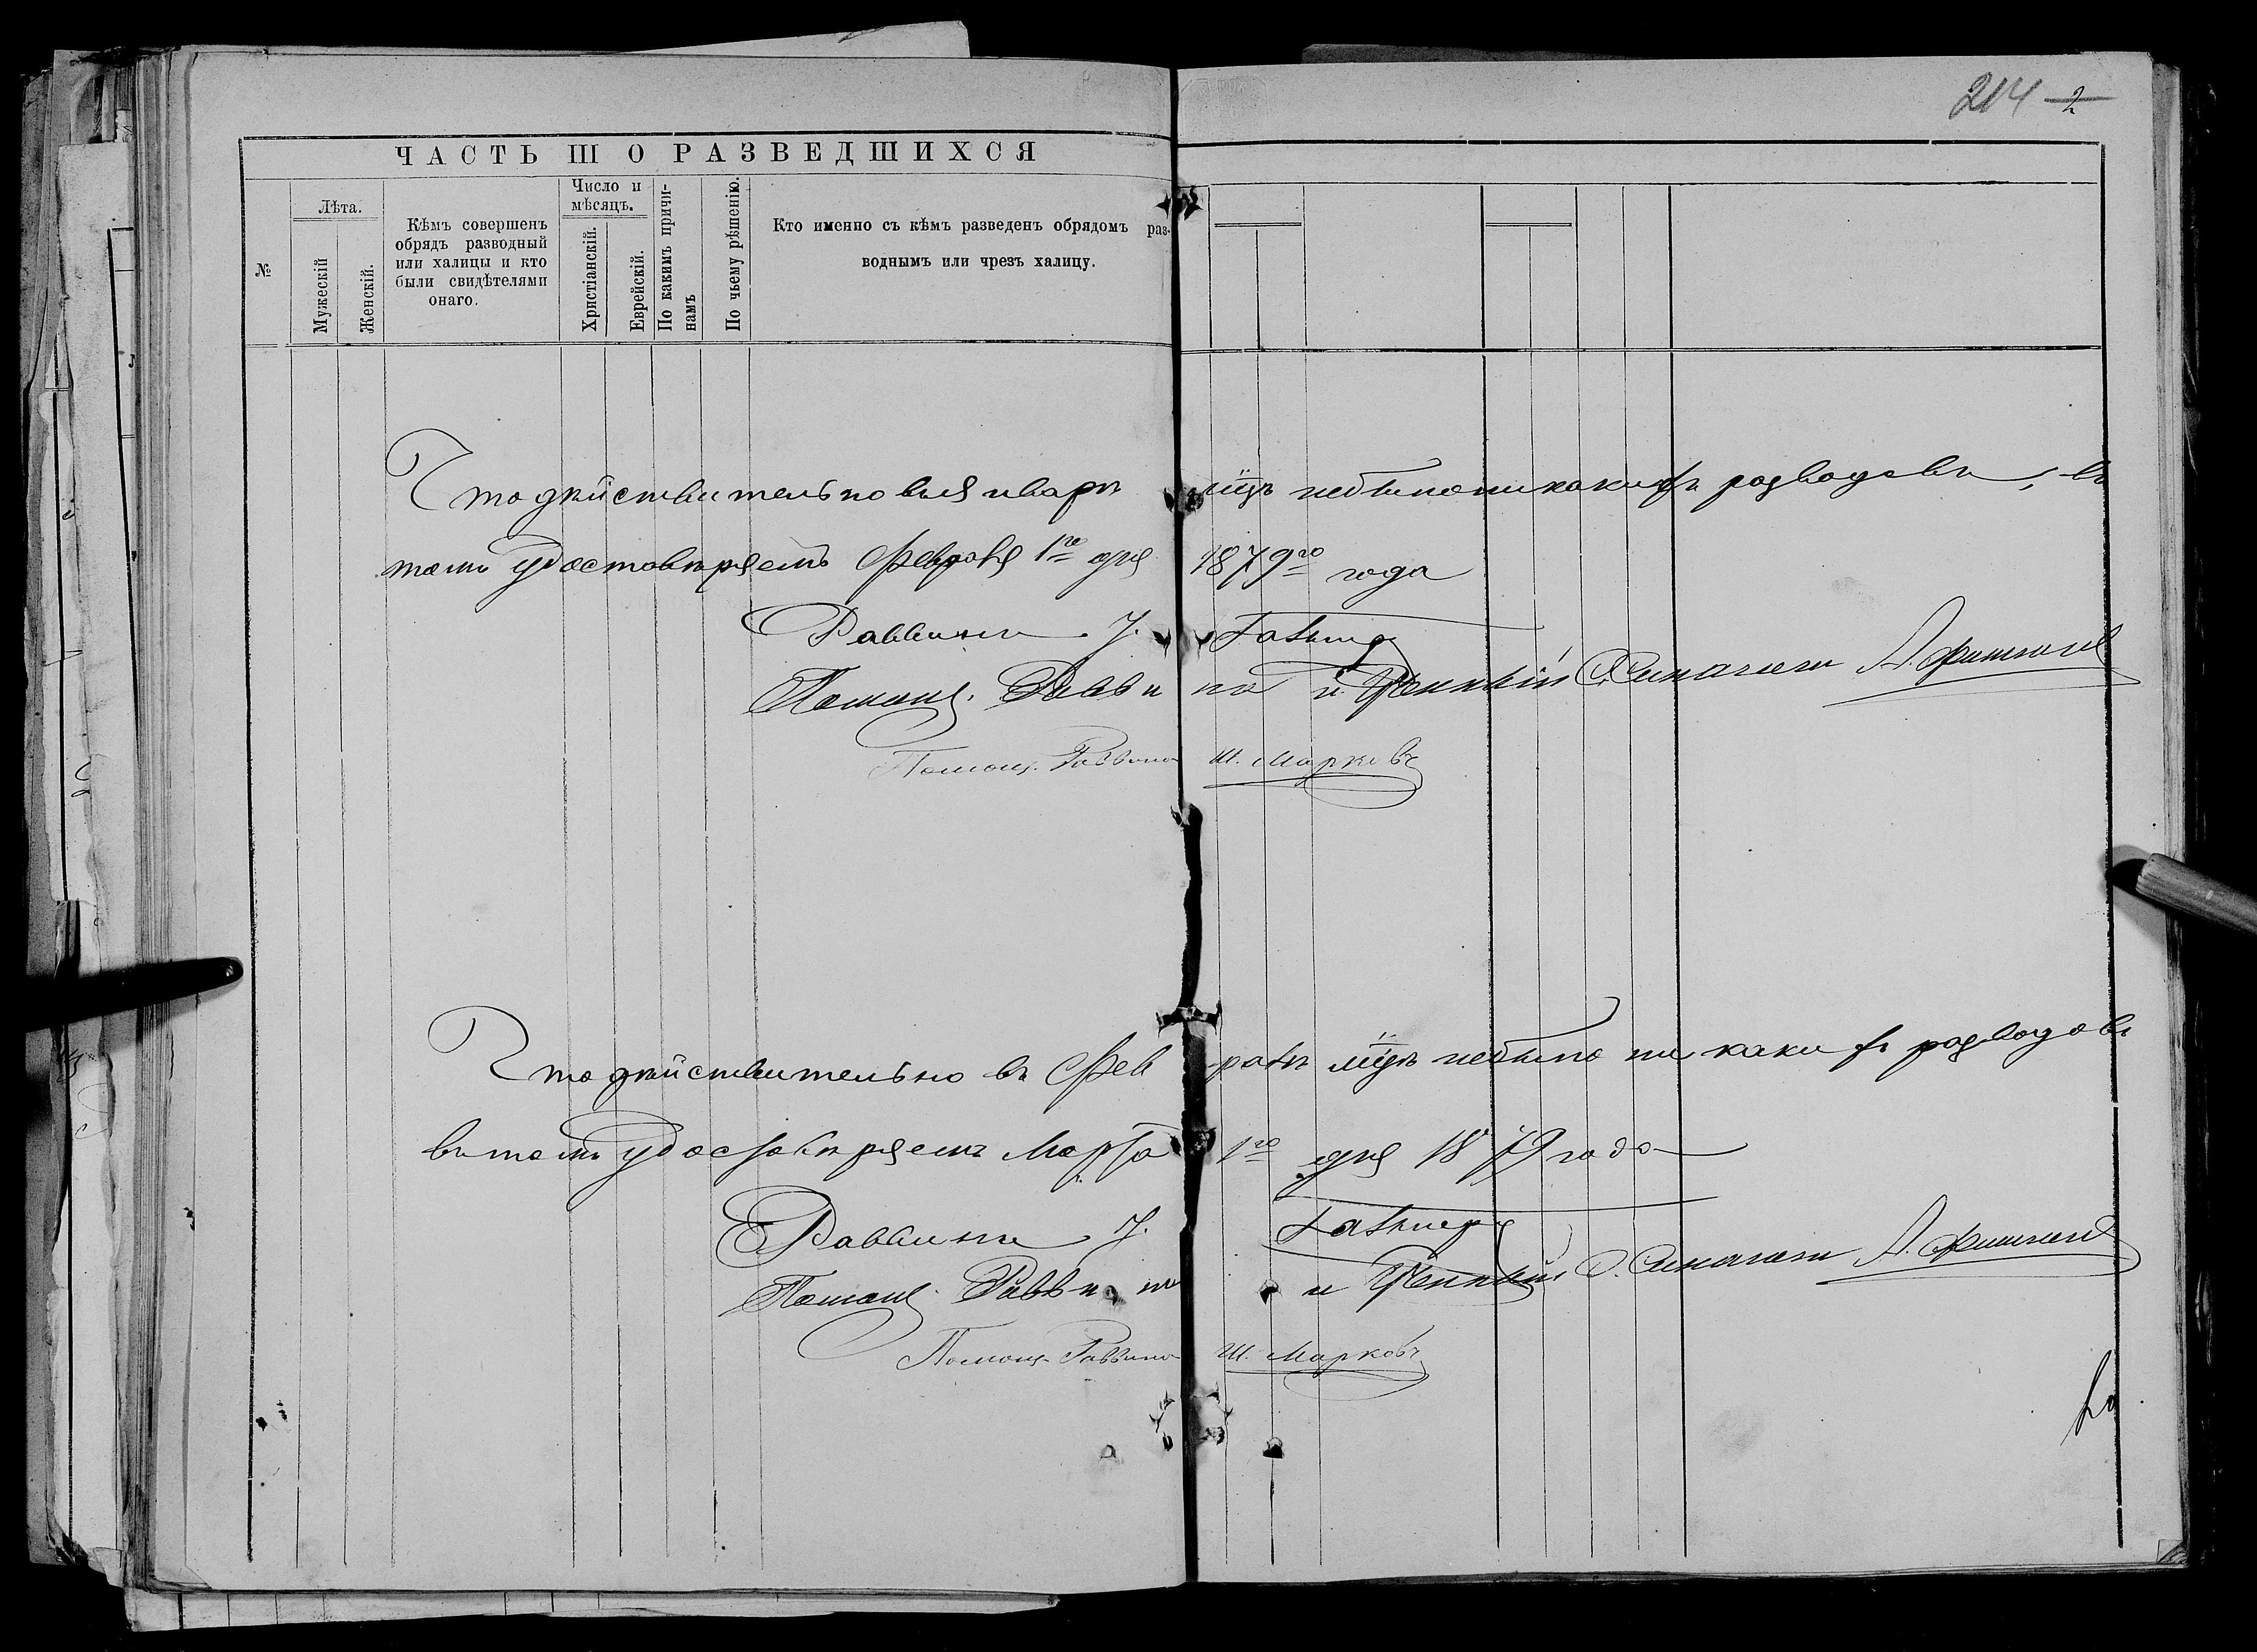 214 2
ЧАСТЬ III О РАЗВЕДШИХСЯ
№
Лѣта.
Мужескій
Женскій.
Кѣмъ совершенъ
обрядъ разводный
или халицы и кто
были свидѣтелями
онаго.
Число и
мѣсяцъ.
Христіанскій.
Еврейскій.
По какимъ причи-
намъ
По чьему рѣшенію.
Кто именно съ кѣмъ разведенъ обрядомъ раз-
воднымъ или чрезъ халицу.
Что дѣйствительно въ январѣ м-цѣ небыло никакихъ разводовъ, въ
томъ удостовѣряемъ Февраля 1го дня 1879го года
Раввинъ
Помощ. Раввина и
Помощ. Раввина Ш. Марковъ
Что дѣйствительно въ Февралѣ м-цѣ небыло никакихъ разводовъ
въ томъ удостовѣряемъ Марта 1го дня 1879 года
Раввинъ
Помощ. Раввина и
Помощ. Раввина Ш. Марковъ